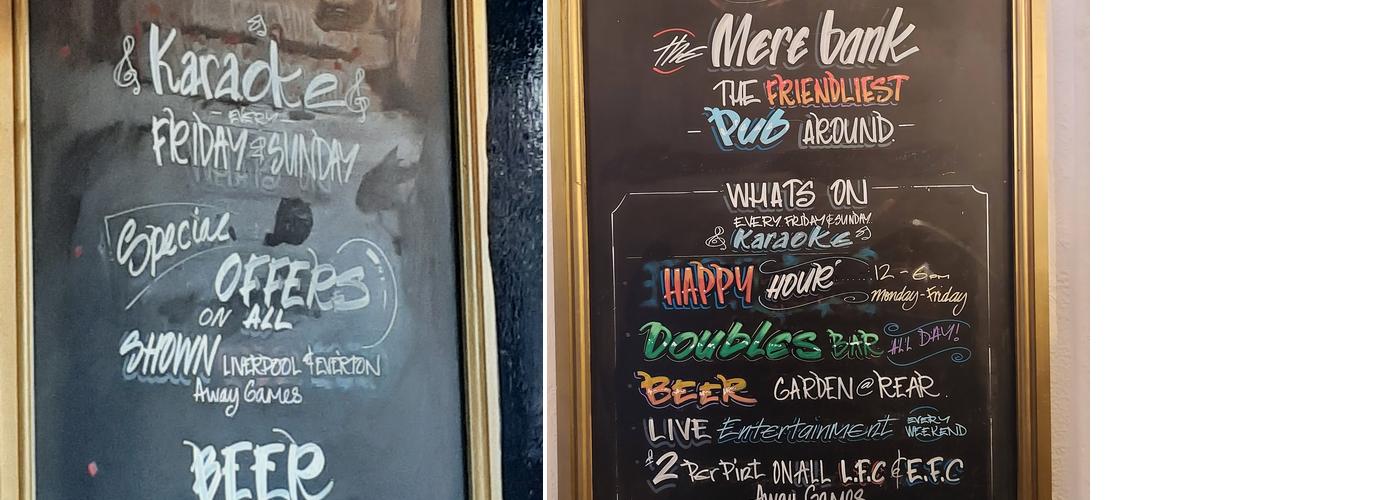 Karaoke
EVERY
FRIDAY & SUNDAY
Special
OFFERS
ON ALL
SHOWN LIVERPOOL & EVERTON
Away Games
BEER
the Mere bank
THE FRIENDLIEST
Pub AROUND
WHATS ON
EVERY FRIDAY & SUNDAY
Karaoke
HAPPY HOUR 12-6pm
monday-Friday
DOUBLES BAR ALL DAY!
BEER GARDEN @ REAR
LIVE Entertainment EVERY WEEKEND
£2 Per Pint ON ALL L.F.C & E.F.C
Away Games